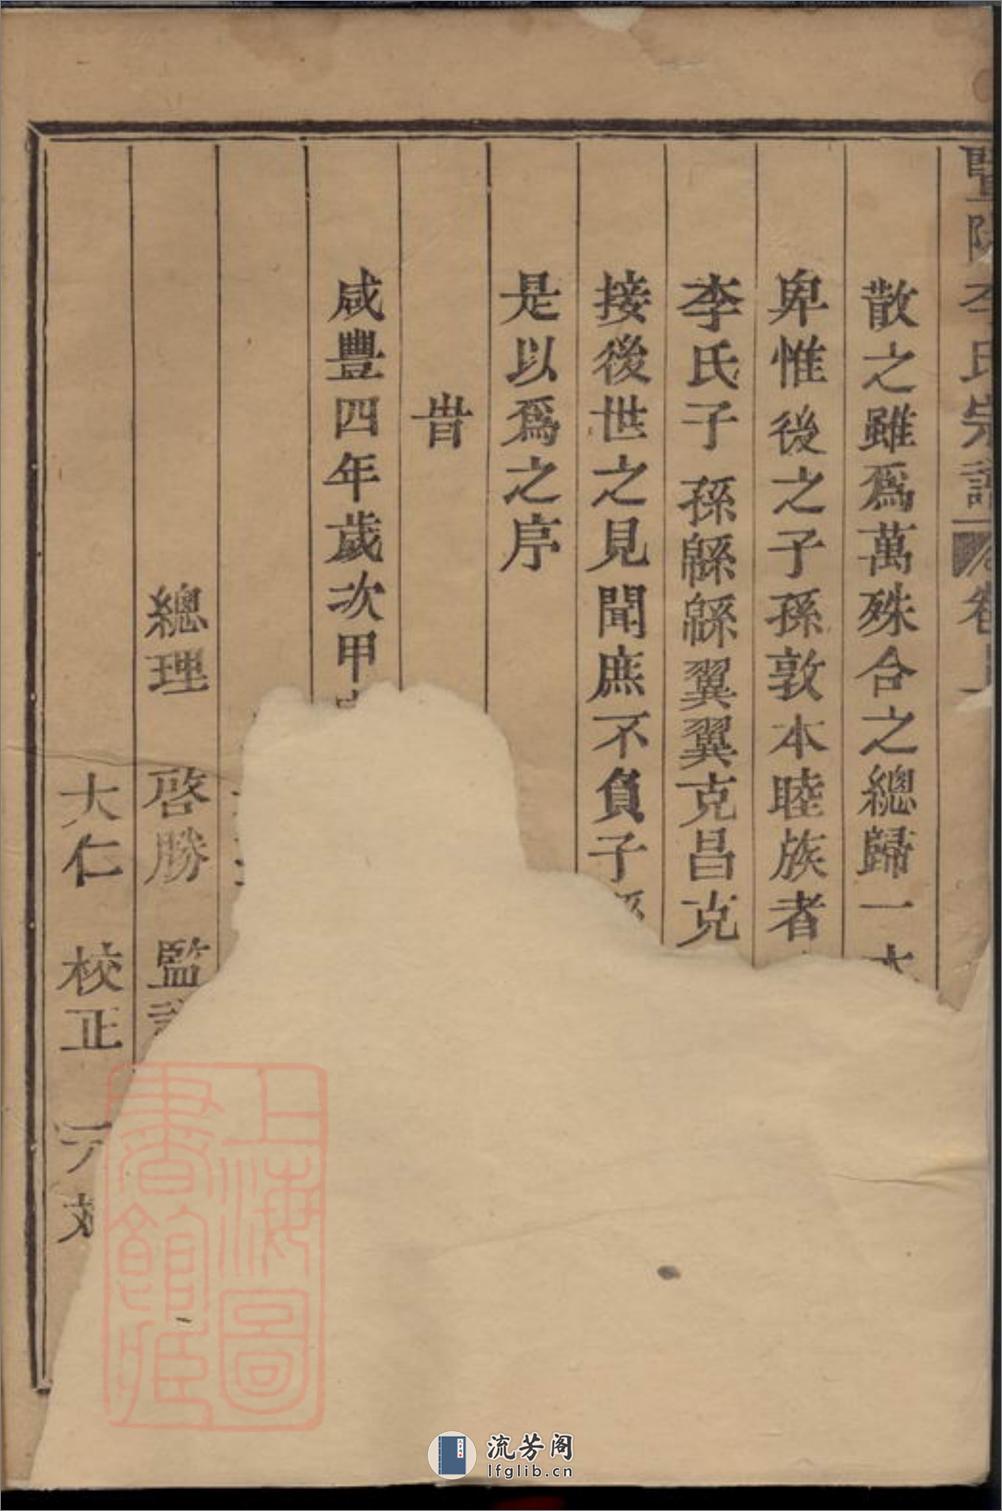 暨陽李氏宗譜 卷
散之雖爲萬殊合之總歸一本
卑惟後之子孫敦本睦族者
李氏子孫緜緜翼翼克昌克
接後世之見聞庶不負子孫
是以爲之序
旹
咸豐四年歲次甲寅
總理 啓勝 監
大仁 校正
上海圖書館藏
流芳阁
lfglib.cn